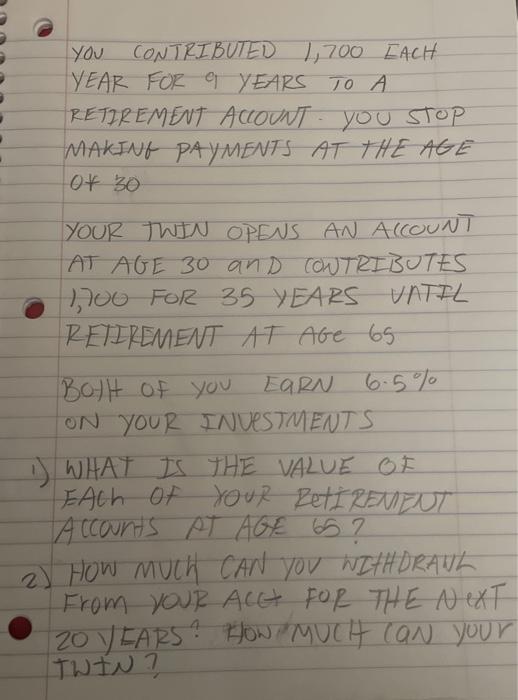 YOU CONTRIBUTED 1,700 EACH
YEAR FOR 9 YEARS TO A
RETIREMENT ACCOUNT. YOU STOP
MAKING PAYMENTS AT THE AGE
OF 30
YOUR TWIN OPENS AN ACCOUNT
AT AGE 30 anD CONTRIBUTES
1,700 FOR 35 YEARS UNTIL
RETIREMENT AT AGe 65
BOTH OF YOU EARN 6.5%
ON YOUR INVESTMENTS
1) WHAT IS THE VALUE OF
EACh OF YOUR RetIREMENT
Accounts AT AGE 65?
2) HOW MUCH CAN YOU WITHDRAWL
From YOUR Acct FOR THE NeXT
20 YEARS? HOW MUCH CaN YOUr
TWIN?